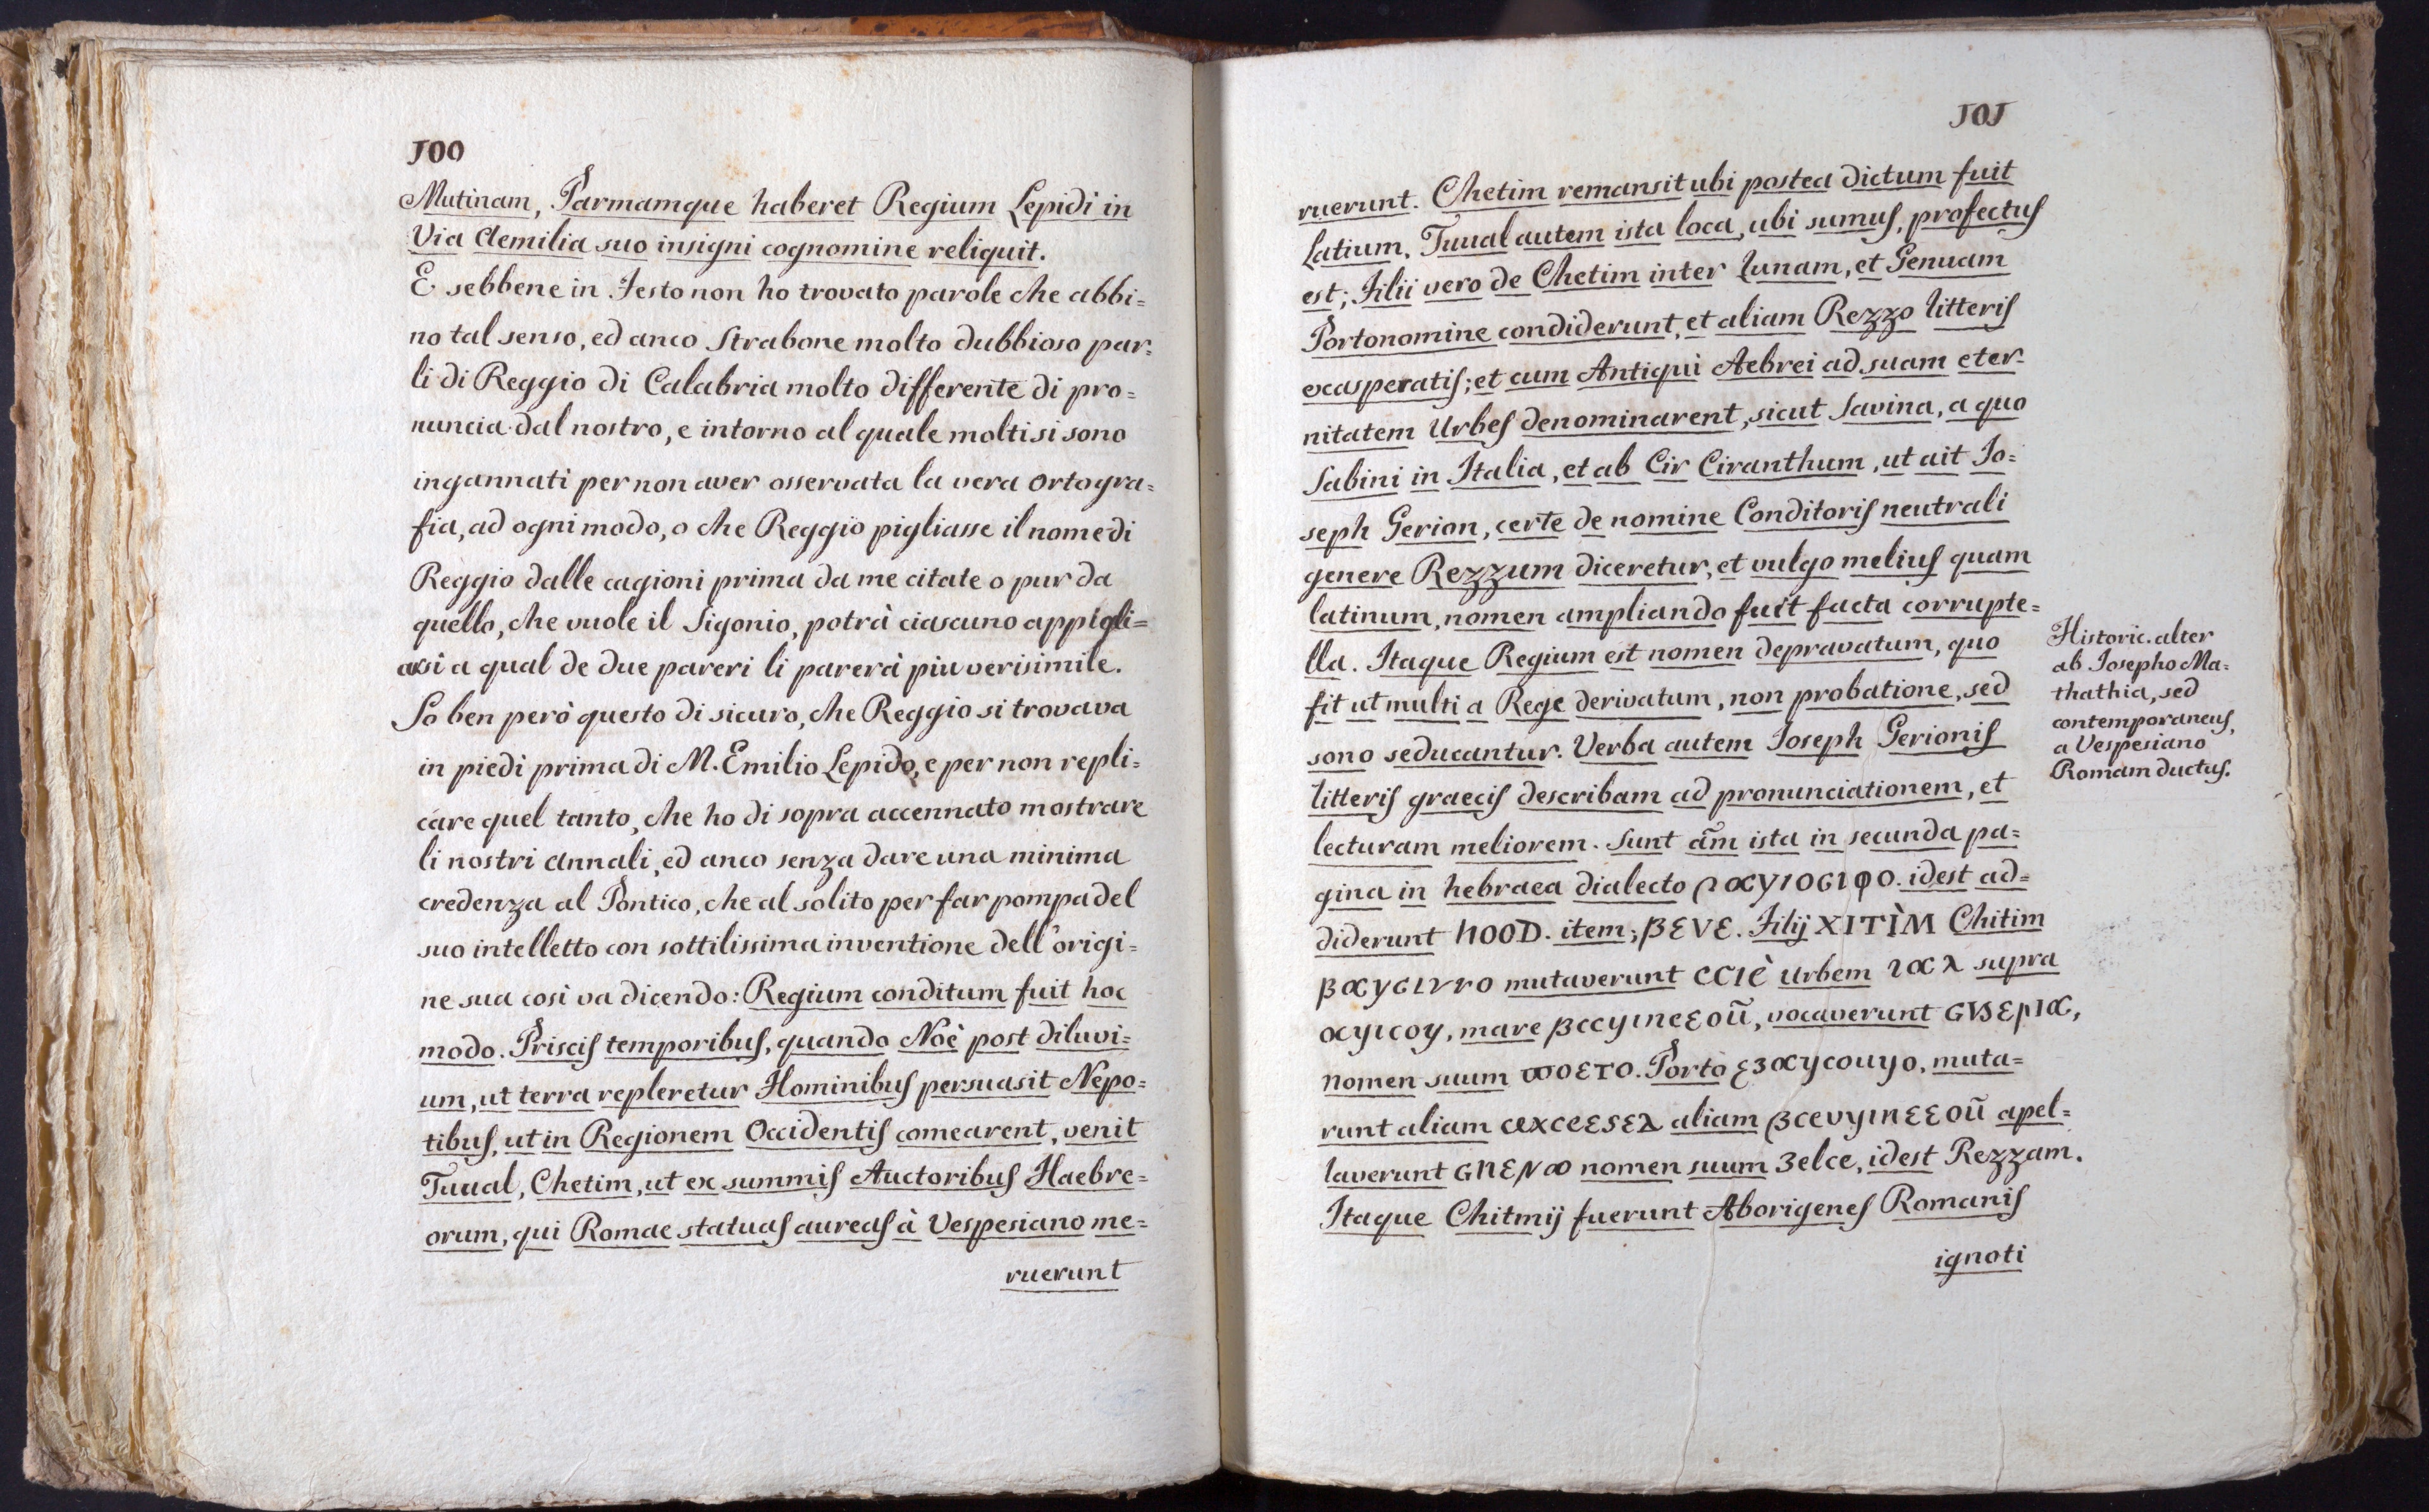 100
Mutinam, Parmamque haberet Regium Lepidi in
Via Aemilia suo insigni cognomine reliquit.
E sebbene in Festo non ho trovato parole che abbi=
no tal senso, ed anco Strabone molto dubbioso par=
li di Reggio di Calabria molto differente di pro=
nuncia dal nostro, e intorno al quale molti si sono
ingannati per non aver osservata la vera ortogra=
fia, ad ogni modo, o che Reggio pigliasse il nome di
Reggio dalle cagioni prima da me citate o pur da
quello, che vuole il Sigonio, potrà ciascuno appigli=
arsi a qual de due pareri li parerà piu verisimile.
So ben però questo di sicuro, che Reggio si trovava
in piedi prima di M. Emilio Lepido, e per non repli=
care quel tanto, che ho di sopra accennato mostrare
li nostri annali, ed anco senza dare una minima
credenza al Pontico, che al solito per far pompa del
suo intelletto con sottilissima inventione dell'origi=
ne sua così va dicendo: Regium conditum fuit hoc
modo. Priscis temporibus, quando Noè post diluvi=
um, ut terra repleretur Hominibus persuasit Nepo=
tibus, ut in Regionem Occidentis comearent, venit
Tuual, Chetim, ut ex summis Auctoribus Haebre=
orum, qui Romae statuas aureas à Vespesiano me=
ruerunt
101
ruerunt. Chetim remansit ubi postea dictum fuit
Latium. Tuual autem ista loca, ubi sumus, profectus
est; Filii vero de Chetim inter Lunam, et Genuam
Portonomine condiderunt, et aliam Rezzo litteris
exasperatis; et cum Antiqui Aebrei ad suam eter-
nitatem Urbes denominarent, sicut Savina, a quo
Sabini in Italia, et ab Cir Ciranthum, ut ait Jo=
seph Gerion, certe de nomine Conditoris neutrali
genere Rezzum diceretur, et vulgo melius quam
latinum, nomen ampliando fuit facta corrupte=
lla. Itaque Regium est nomen depravatum, quo
fit ut multi a Rege derivatum, non probatione, sed
sono seducantur. Verba autem Joseph Gerionis
litteris graecis describam ad pronunciationem, et
lecturam meliorem. Sunt am̃ ista in secunda pa=
gina in hebraea dialecto idest ad=
diderunt item; βεVε. Filij XITÌM Chitim
mutaverunt CCIÈ Urbem supra
mare vocaverunt
nomen suum Porto muta=
runt aliam aliam apel=
laverunt nomen suum 3elce, idest Rezzam.
Itaque Chitmij fuerunt Aborigenes Romanis
ignoti
Historic. alter
ab Josepho Ma=
thathia, sed
contemporaneus,
a Vespesiano
Romam ductus.